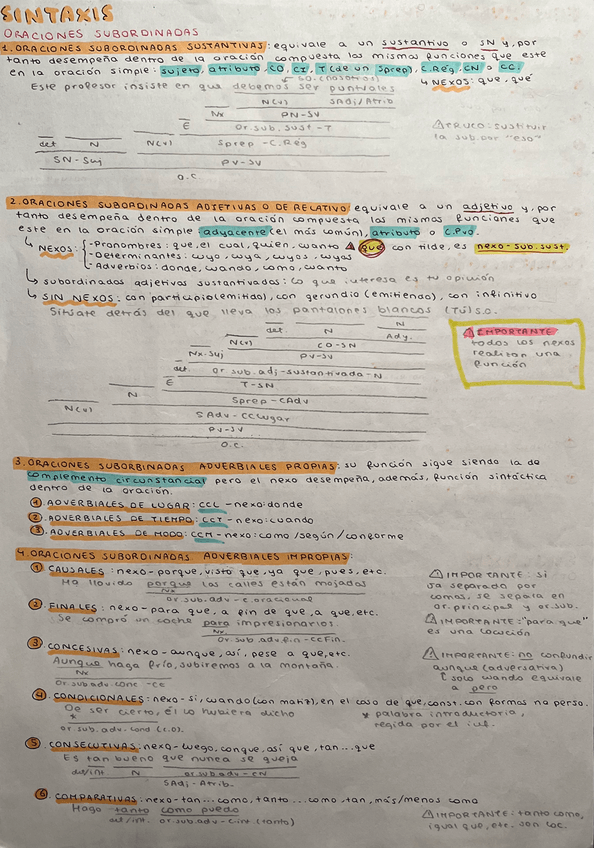 SINTAXIS
ORACIONES SUBORDINADAS
1. ORACIONES SUBORDINADAS SUSTANTIVAS: equivale a un sustantivo o SN y, por
tanto desempeña dentro de la oración compuesta las mismas funciones que este
en la oración simple: sujeto, atributo, CO, CI, T (de un Sprep), C.Rég, CN o CC.
↳ SO. (nosotros)
↳ NEXOS: que, qué
Este profesor insiste en que debemos ser puntuales
N(v) SAdj/Atrib
Nx PN-SV
⚠ TRUCO: sustituir
la sub. por "eso"
E Or sub. sust-T
det N N(v) Sprep-C.Rég
SN-Suj PV-SV
O.C.
2. ORACIONES SUBORDINADAS ADJETIVAS O DE RELATIVO: equivale a un adjetivo y, por
tanto desempeña dentro de la oración compuesta las mismas funciones que
este en la oración simple: adyacente (el más común), atributo o C.Pvo.
↳ NEXOS: -Pronombres: que, el cual, quien, cuanto ⚠ qué con tilde, es nexo-sub.sust.
-Determinantes: cuyo, cuya, cuyos, cuyas
-Adverbios: donde, cuando, como, cuanto
↳ subordinadas adjetivas sustantivadas: Lo que interesa es tu opinión
↳ SIN NEXOS: con participio (emitido), con gerundio (emitiendo), con infinitivo
Sitúate detrás del que lleva los pantalones blancos (Tú) S.O.
det N N
Ady.
N(v) CO-SN
Nx-Suj PV-SV
det. or sub. adj-sustantivada-N
E T-SN
N Sprep-CAdv
N(v) SAdv-CCLugar
PV-SV
O.C.
⚠ IMPORTANTE
todos los nexos
realizan una
función
3. ORACIONES SUBORBINADAS ADVERBIALES PROPIAS: su función sigue siendo la de
complemento circunstancial pero el nexo desempeña, además, función sintáctica
dentro de la oración.
① ADVERBIALES DE LUGAR: CCL - nexo: donde
② ADVERBIALES DE TIEMPO: CCT - nexo: cuando
③ ADVERBIALES DE MODO: CCM - nexo: como/según/conforme
4. ORACIONES SUBORDINADAS ADVERBIALES IMPROPIAS:
① CAUSALES: nexo-porque, visto que, ya que, pues, etc.
Ha llovido porque las calles están mojadas
Nx
or sub. adv-c.oracional
⚠ IMPORTANTE: si
va separada por
comas, se separa en
or. principal y or. sub.
② FINALES: nexo-para que, a fin de que, a que, etc.
Se compró un coche para impresionarlos
Nx
Or. sub. adv fin-CCFin.
⚠ IMPORTANTE: "para que"
es una locución
③ CONCESIVAS: nexo-aunque, así, pese a que, etc.
Aunque haga frío, subiremos a la montaña.
Nx
Or sub adv conc-CC
⚠ IMPORTANTE: no confundir
aunque (adversativa)
↳ solo cuando equivale
a pero
④ CONDICIONALES: nexo-si, cuando (con matiz), en el caso de que, const. con formas no perso.
De ser cierto, él lo hubiera dicho
*
or sub. adv. cond (C.O).
* palabra introductoria,
regida por el inf.
⑤ CONSECUTIVAS: nexo-luego, conque, así que, tan...que
Es tan bueno que nunca se queja
det/int. N or sub adv-CN
SAdj-Atrib.
⑥ COMPARATIVAS: nexo-tan...como, tanto...como, tan, más/menos como
Hago tanto como puedo
det/int. or. sub. adv-Cint (tanto)
⚠ IMPORTANTE: tanto como,
igual que, etc. son loc.